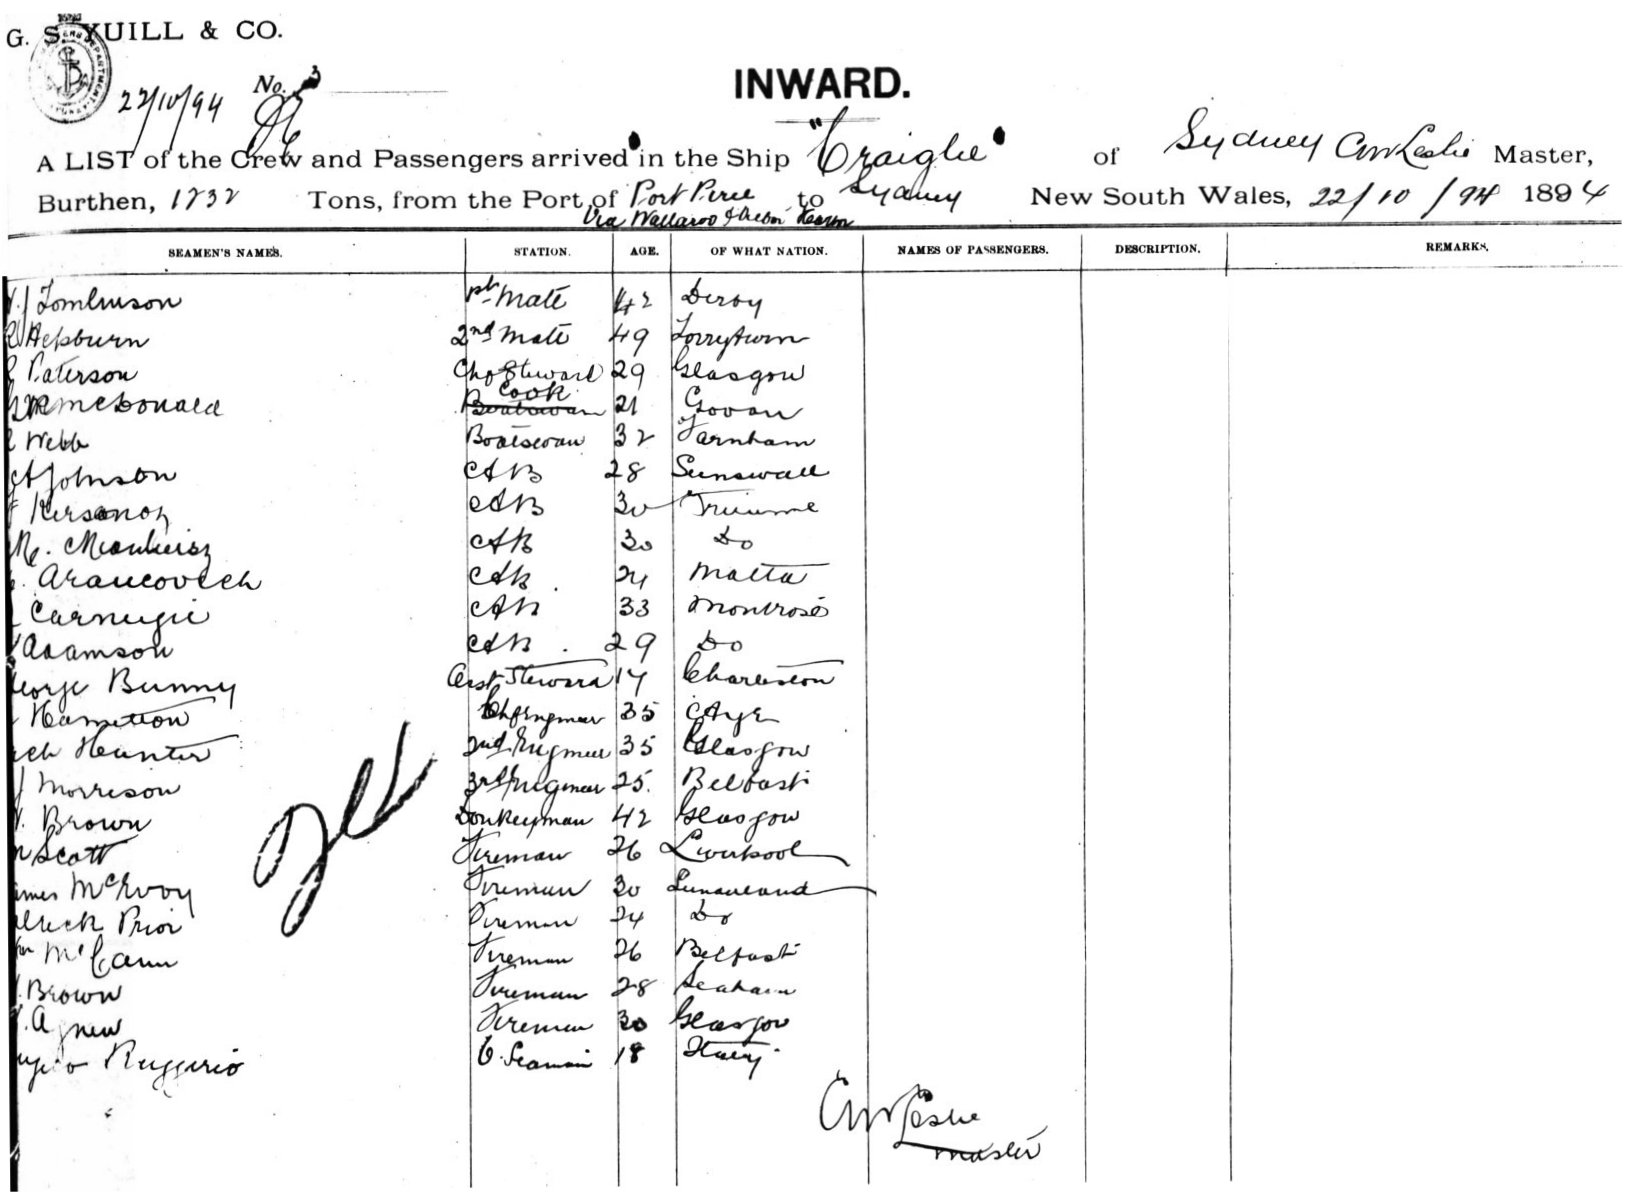 G. S. YUILL & CO.
22/10/94 No. 3
INWARD.
A LIST of the Crew and Passengers arrived in the Ship "Craiglie" of Sydney CWLeslie Master,
Burthen, 1232 Tons, from the Port of Port Pirie to Sydney New South Wales, 22/10/94 1894
Via Wallaroo &
SEAMEN'S NAMES. STATION. AGE. OF WHAT NATION. NAMES OF PASSENGERS. DESCRIPTION. REMARKS.
J Tomlinson 1st Mate 42 Derby
Hepburn 2nd Mate 49
Paterson Chf Steward 29 Glasgow
McDonald Boatswan Cook 21 Govan
Webb Boatswan 32 Farnham
A Johnson AB 28
AB 30
AB 30 Do
AB 24 Malta
Carnegie AB 33 Montrose
Adamson AB 29 Do
George Bunny Asst Steward 17 Charleston
Hamilton Chf Engineer 35 Ayr
Hunter 2nd Engineer 35 Glasgow
J Morrison 3rd Engineer 25. Belfast
Brown Donkeyman 42 Glasgow
Scott Fireman 26 Liverpool
James McEvoy Fireman 30 Sunderland
Prior Fireman 24 Do
Wm McCann Fireman 26 Belfast
Brown Fireman 28 Seaham
Agnew Fireman 30 Glasgow
Ruggerio O. Seaman 18 Italy
CWLeslie
Master